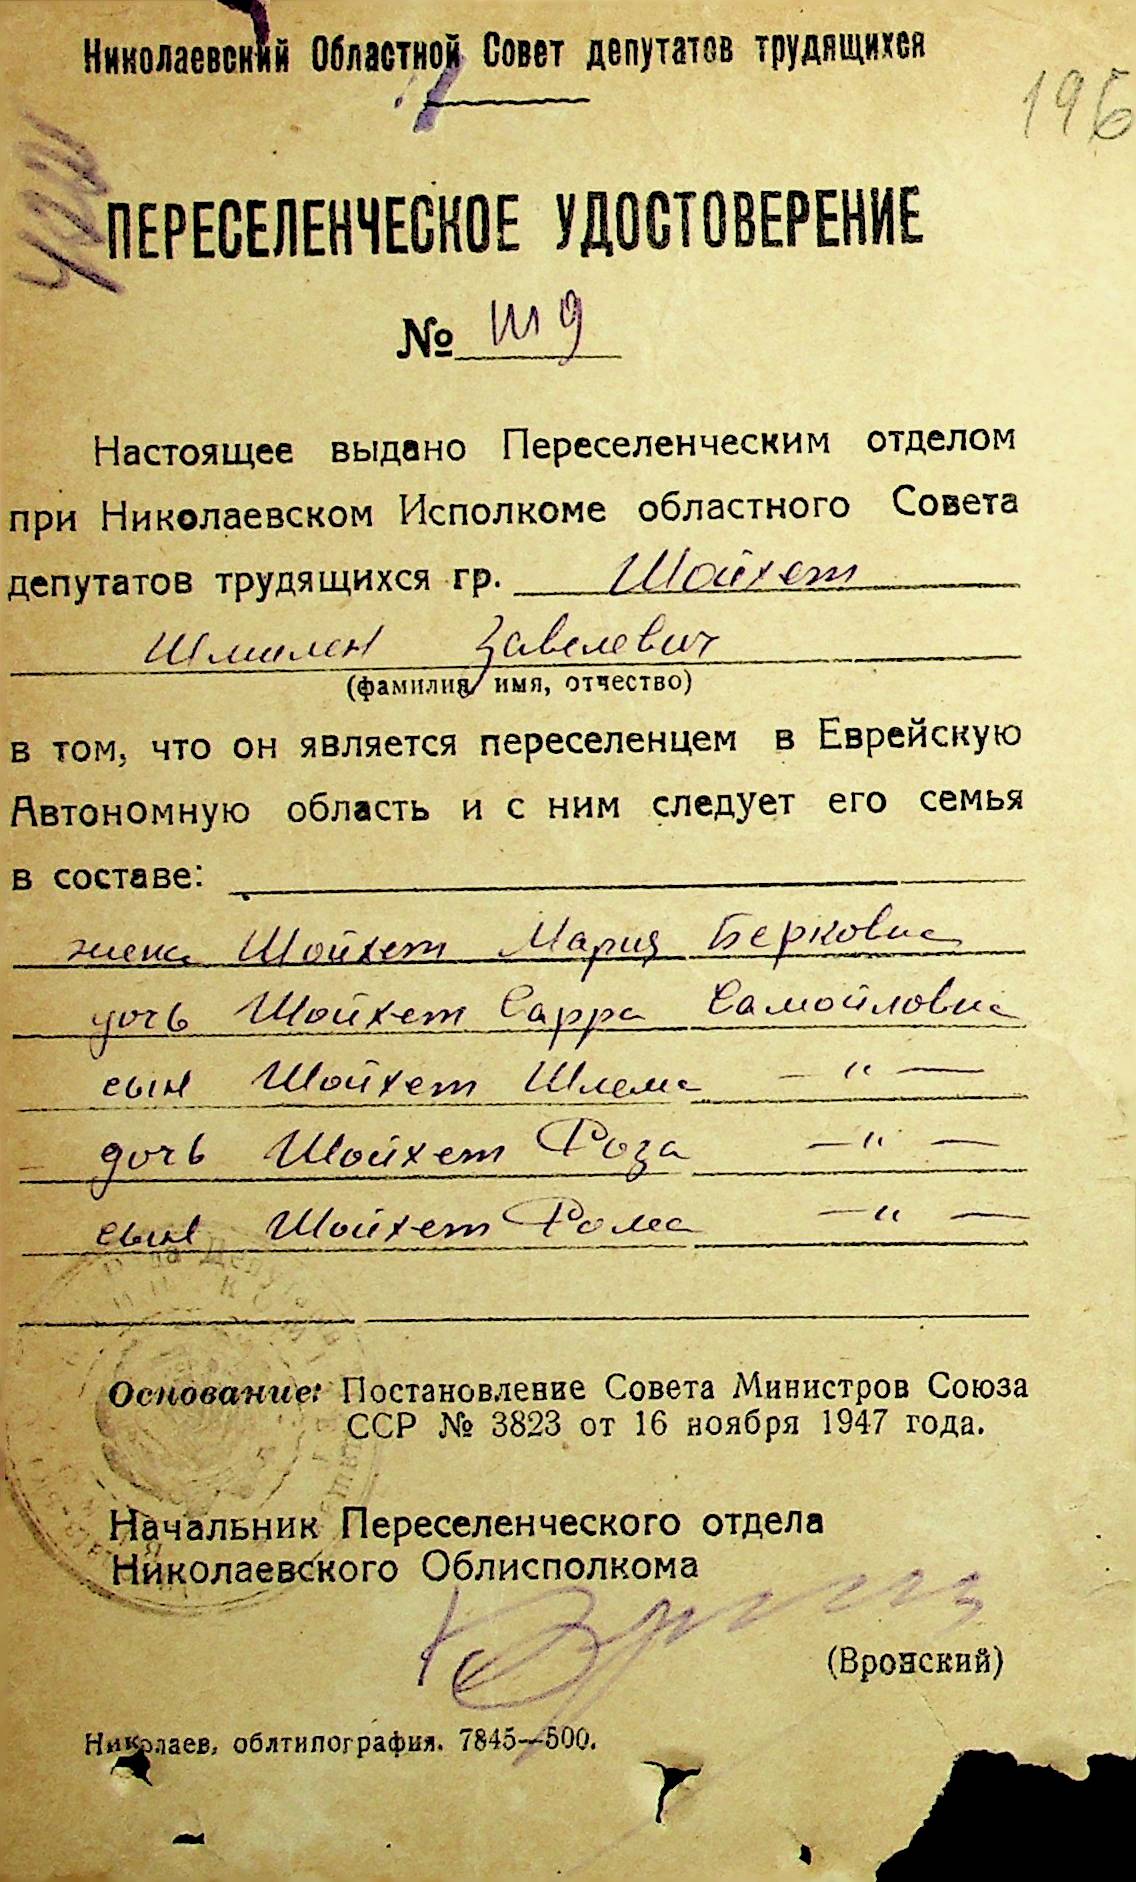 Николаевский Областной Совет депутатов трудящихся
196
422
ПЕРЕСЕЛЕНЧЕСКОЕ УДОСТОВЕРЕНИЕ
№
Настоящее выдано Переселенческим отделом
при Николаевском Исполкоме областного Совета
депутатов трудящихся гр. Шойхет
Шмилен Завелевич
(фамилия, имя, отчество)
в том, что он является переселенцем в Еврейскую
Автономную область и с ним следует его семья
в составе:
жена Шойхет Мария Берковна
дочь Шойхет Сарра Самойловна
сын Шойхет Шлема — " —
дочь Шойхет Роза — " —
сын Шойхет Рома — " —
Основание: Постановление Совета Министров Союза
ССР № 3823 от 16 ноября 1947 года.
Начальник Переселенческого отдела
Николаевского Облисполкома
(Вронский)
Николаев, облтипография. 7845—500.